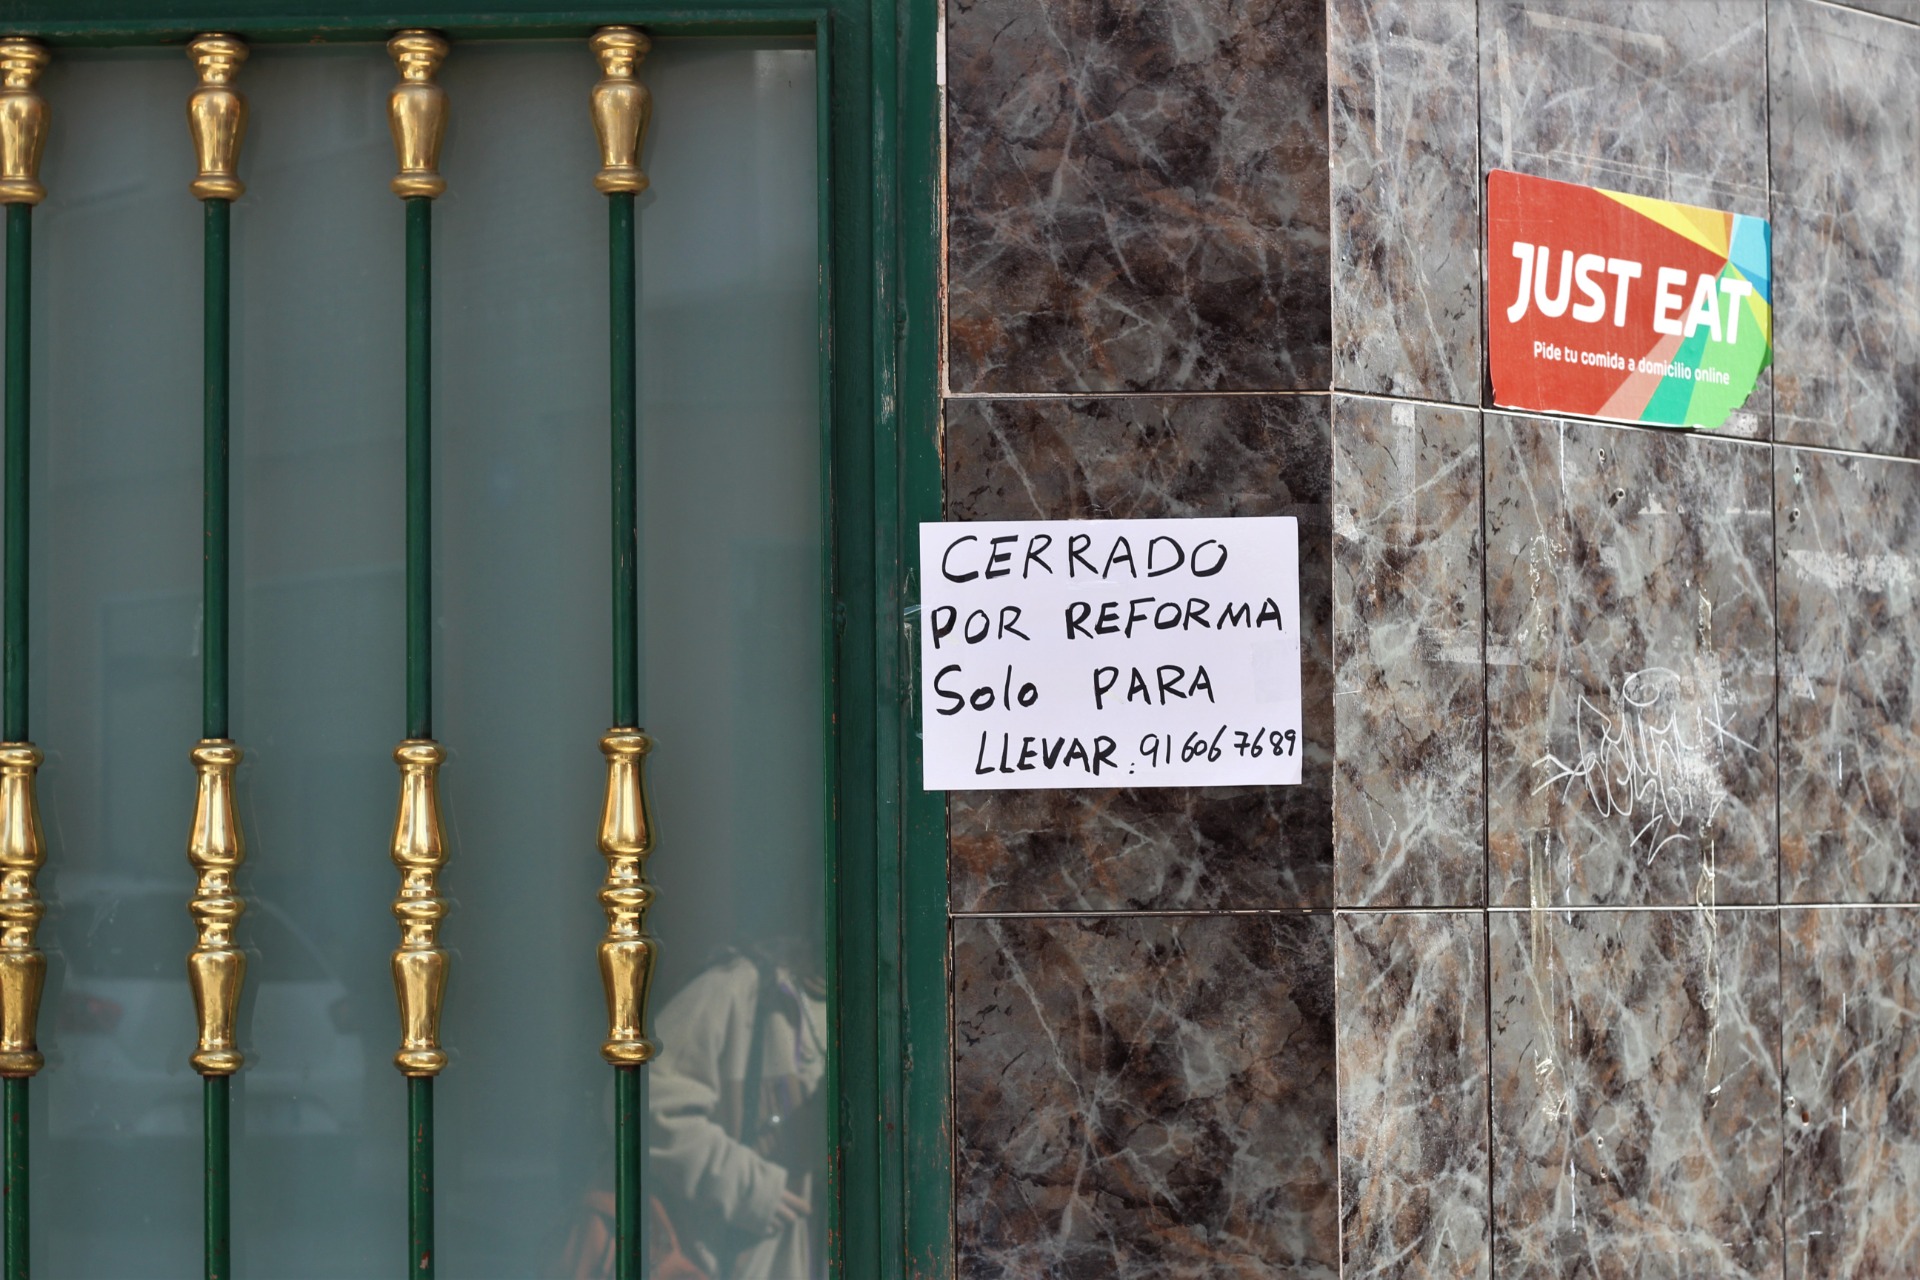 CERRADO
POR REFORMA
Solo PARA
LLEVAR: 916067689
JUST EAT
Pide tu comida a domicilio online